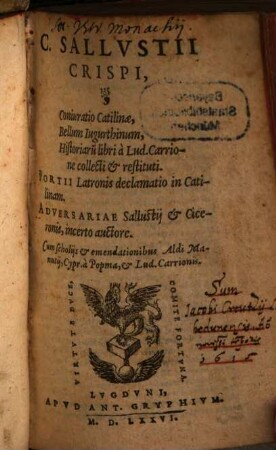 C. SALLVSTII
CRISPI,
Coniuratio Catilinæ,
Bellum Iugurthinum,
Historiarũ libri à Lud. Carrio-
ne collecti & restituti.
PORTII Latronis declamatio in Cati-
linam.
ADVERSARIAE Sallustij & Cice-
ronis, incerto auctore.
Cum scholijs & emendationibus Aldi Ma-
nutij, Cypr. à Popma, & Lud. Carrionis.
VIRTVTE DVCE,
COMITE FORTVNA.
Sum
Jacobi
1616
LVGDVNI,
APVD ANT. GRYPHIVM.
M. D. LXXVI.